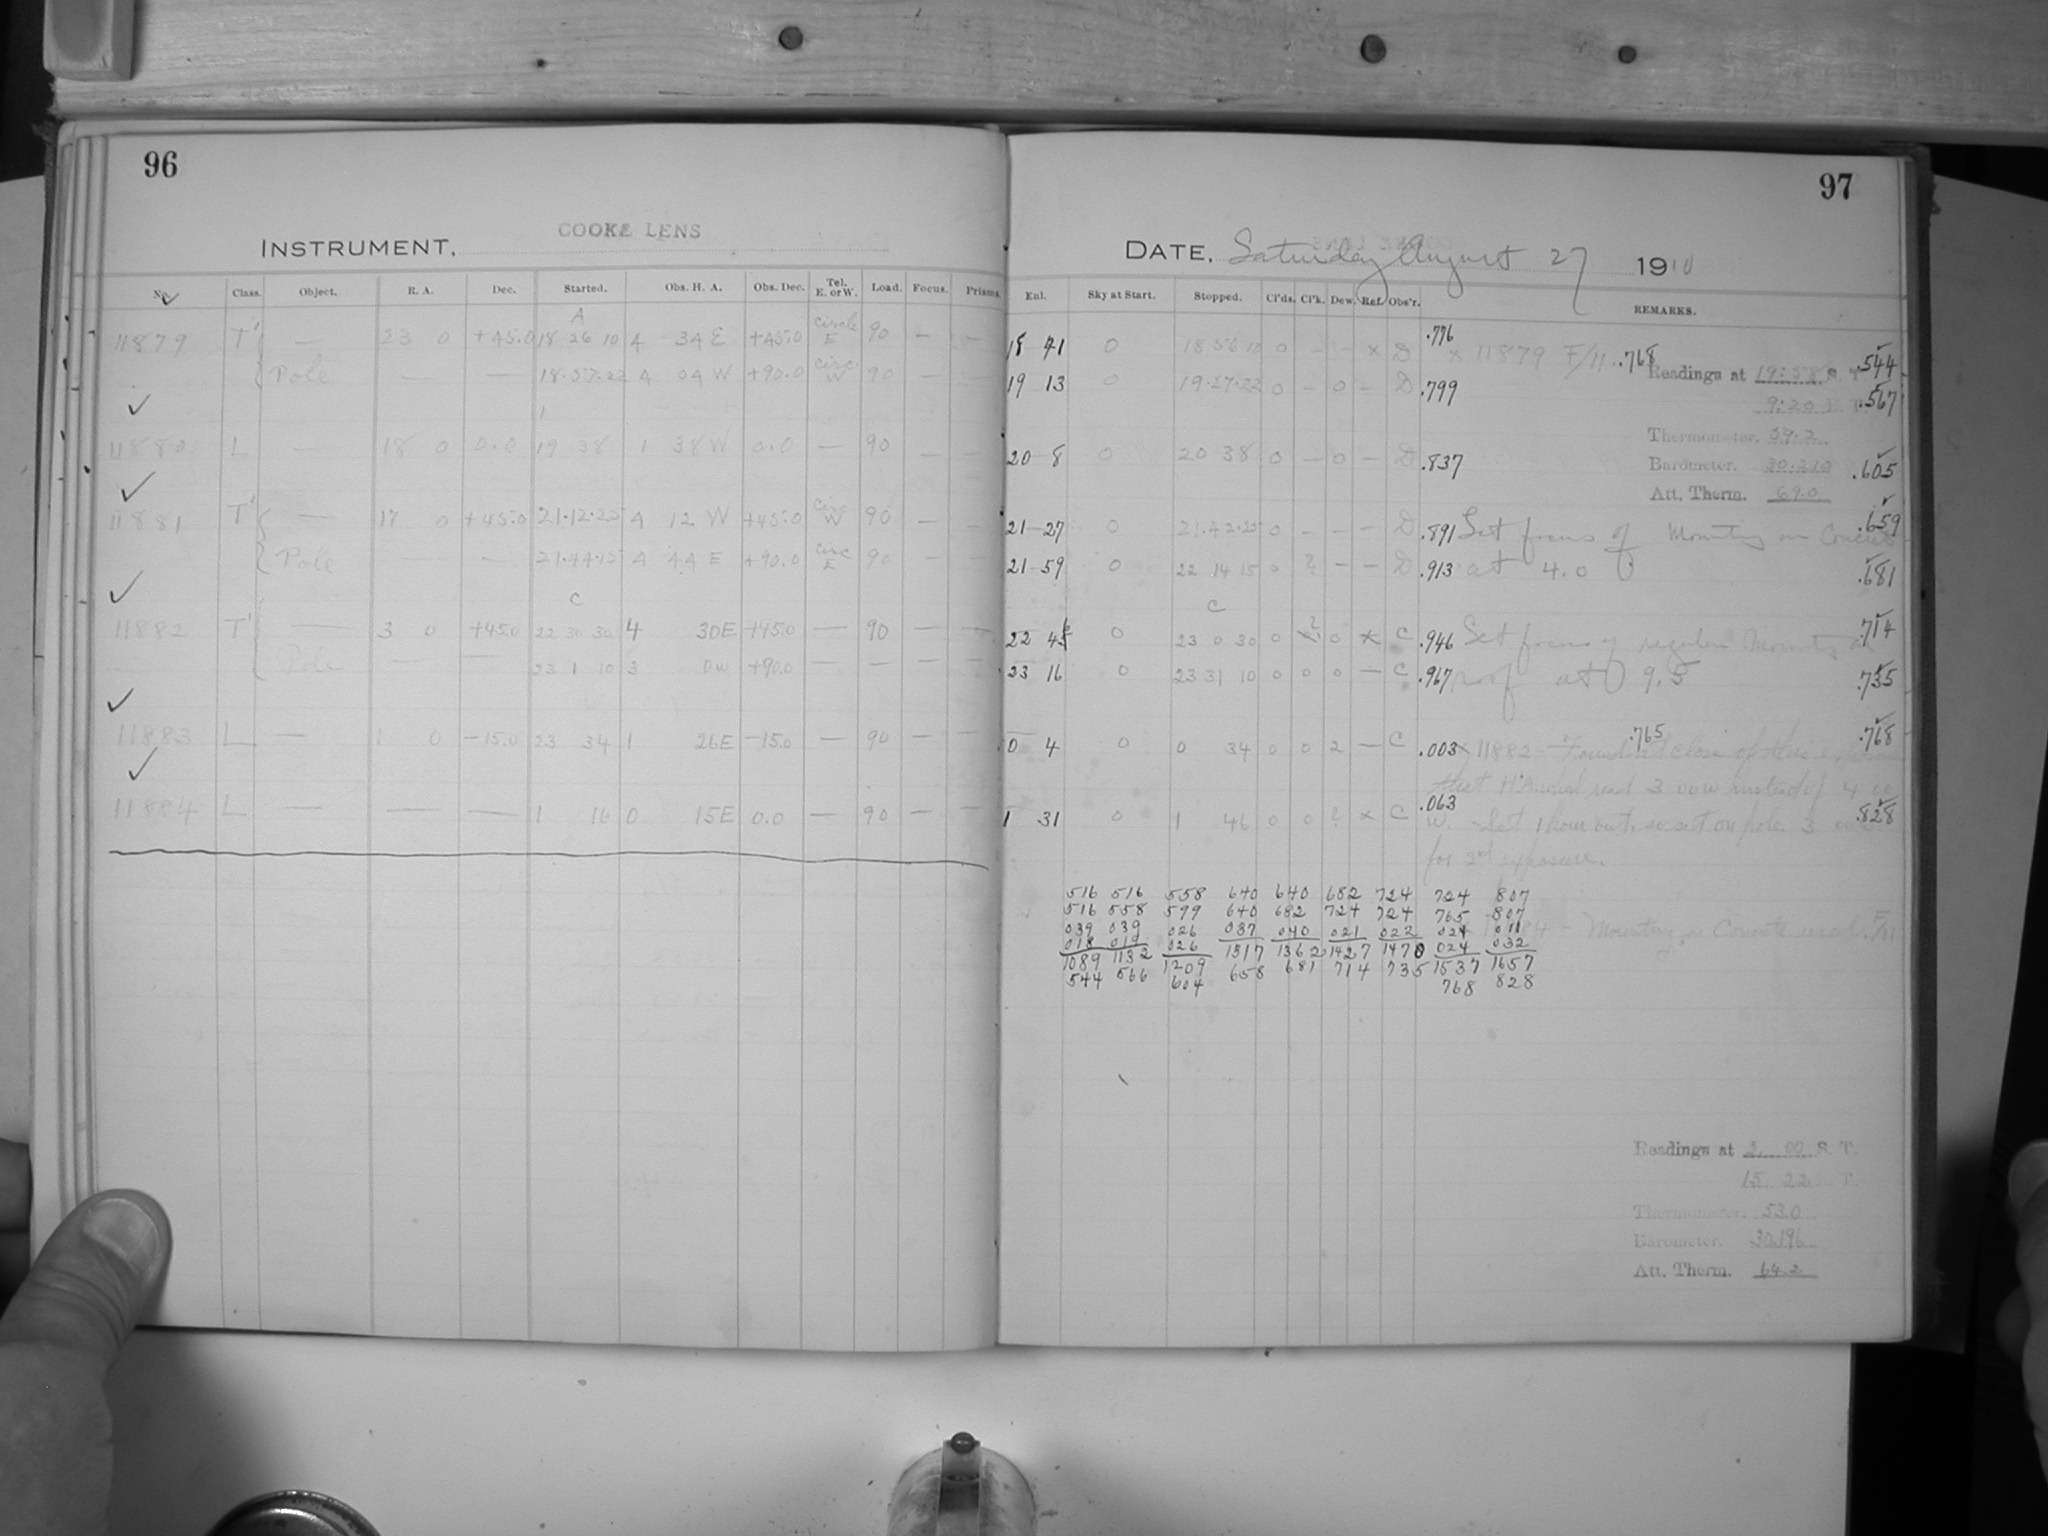 96
COOKE LENS
INSTRUMENT,
No. Class. Object. R. A. Dec. Started. Obs. H. A. Obs. Dec. Tel. E. or W. Load. Focus. Prisms
A
11879 T' — 23 0 +45.0 18 26 10 4 34 E +45.0 Circle E 90 — —
Pole — — 18.57.22 4 04 W +90.0 circ. W 90 — —
11880 L — 18 0 0.0 19 38 1 38 W 0.0 — 90 — —
11881 T' — 17 0 +45.0 21.12.25 4 12 W +45.0 Circ W 90 — —
Pole — — 21.44.15 4 44 E +90.0 circ E 90 — —
C
11882 T' — 3 0 +45.0 22 30 30 4 30E +45.0 — 90 — —
Pole — — 23 1 10 3 0W +90.0 — — — —
11883 L — 1 0 -15.0 23 34 1 26E -15.0 — 90 — —
11884 L — — — 1 16 0 15E 0.0 — 90 — —
97
DATE, Saturday August 27 1910
Eul. Sky at Start. Stopped. Cl'ds. Cl'k. Dew. Ref. Obs'r. REMARKS.
18 41 0 18 56 10 0 — — x D .776 x 11879 F/11 .768 .544
Readings at 19:58 S. T.
19 13 0 19.27.22 0 — 0 — D .799 9:20 T. .567
Thermometer. 59.2
20 8 0 20 38 0 — 0 — D .837 Barometer. 30.210 .605
Att. Therm. 69.0
21-27 0 21.42.25 0 — — — D .891 Set focus of Mounting on Concrete .659
21-59 0 22 14 15 0 ? — — D .913 at 4.0 .681
C
22 45 0 23 0 30 0 ? 0 x C .946 Set focus of regular mounting on .714
23 16 0 23 31 10 0 0 0 — C .967 roof at 9.5 .735
.765
0 4 0 0 34 0 0 2 — C .003 x 11882 - Found at close of this .768
that H.A. wheel read 3 00W instead of 4 00
.063
1 31 0 1 46 0 0 2 x C W. Set 1 hour out, so set on pole 3 00 .828
for 2d exposure.
516 516 558 640 640 682 724 724 807
516 558 599 640 682 724 724 765 807
039 039 026 037 040 021 022 024 011
018 019 026 1317 1362 1427 1470 024 032
1089 1132 1209 658 681 714 735 1537 1657
544 566 604 768 828
x 11884 - Mounting on Concrete used. F/11
Readings at 2 00 S. T.
15 22 T.
Thermometer. 53.0
Barometer. 30.196
Att. Therm. 64.2